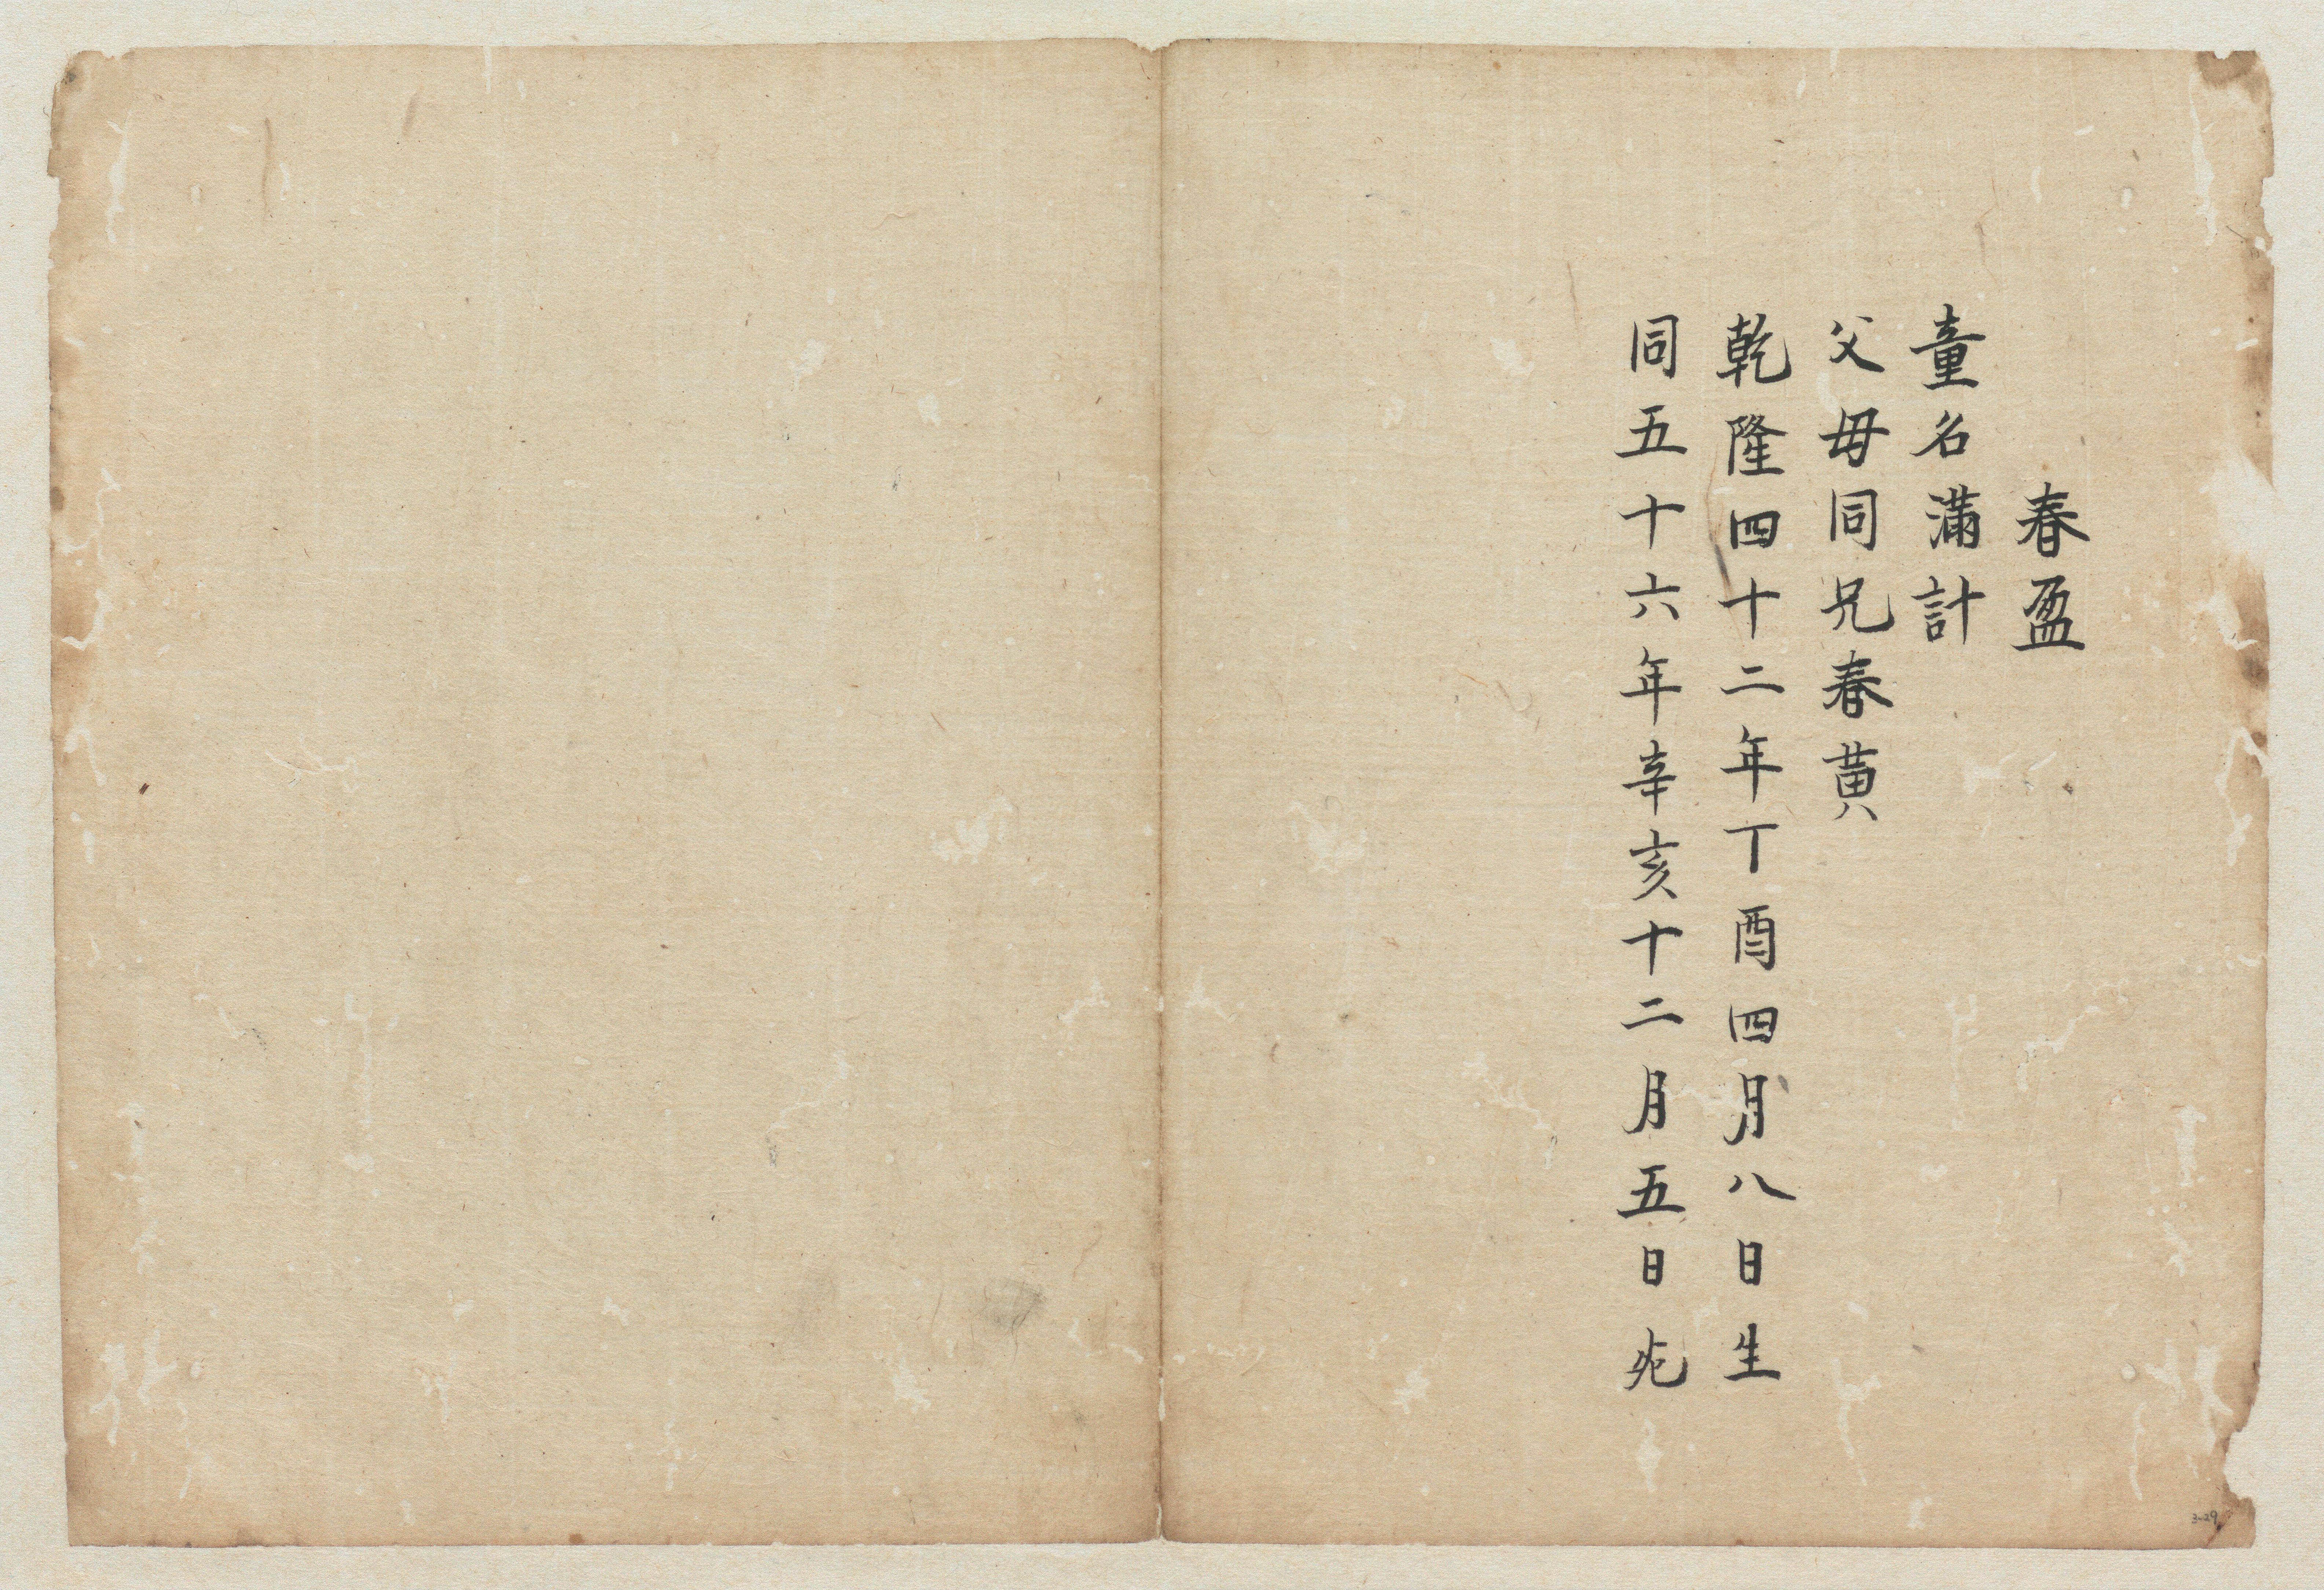 春盈
童名滿計
父母同兄春黄
乾隆四十二年丁酉四月八日生
同五十六年辛亥十二月五日死
3-29